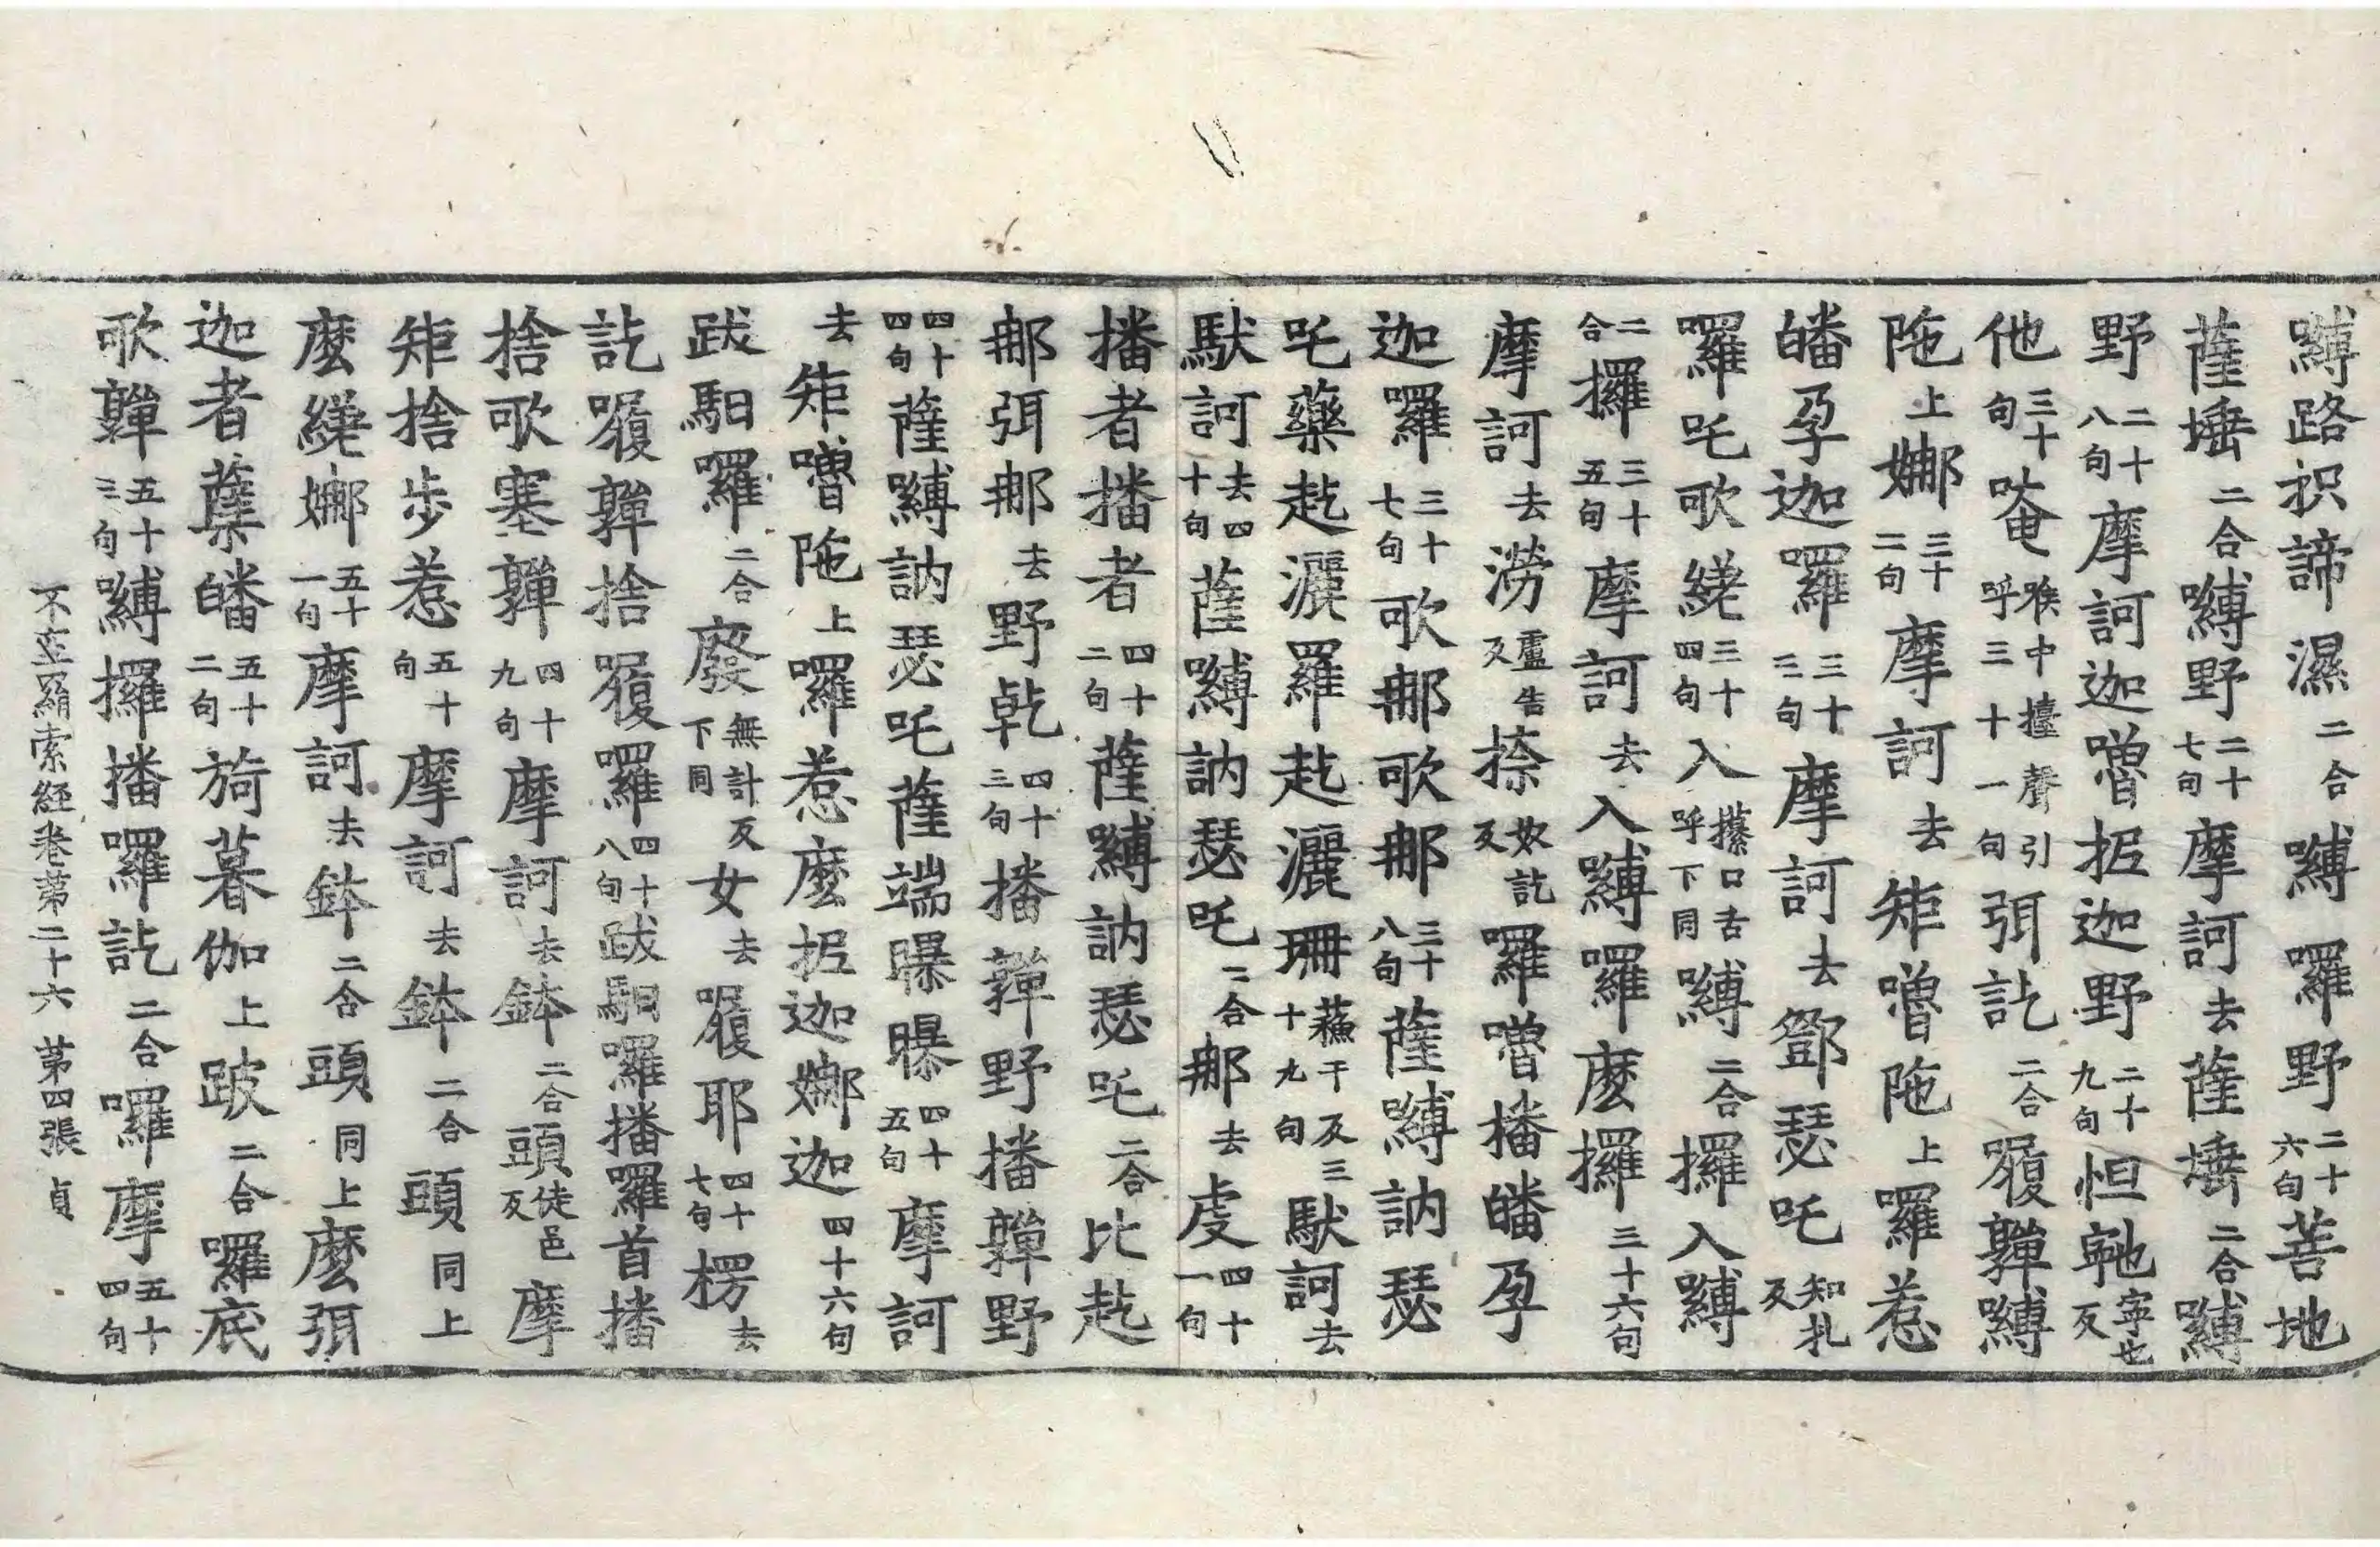 嚩路枳諦濕二合嚩囉野二十六句菩地
薩埵二合嚩野二十七句摩訶去薩埵二合嚩
野二十八句摩訶迦嚕抳迦野二十九句怛寧也反
他三十句唵喉中擡聲引呼三十一句弭訖二合履嚩
陁上娜三十二句摩訶去矩嚕陁上囉惹
皤孕迦囉三十三句摩訶去鄧瑟吒知札反
囉吒歌繞三十四句入攥口舌呼下同嚩二合攞入嚩
二合攞三十五句摩訶去入嚩囉麼攞三十六句
摩訶去澇盧告反捺奴訖反囉嚕播皤孕
迦囉三十七句歌那歌那三十八句薩嚩訥瑟
吒藥赼灑羅赼灑珊蘇干反三十九句馱訶去
馱訶去四十句薩嚩訥瑟吒二合那去虔四十一句
播者播者四十二句薩嚩訥瑟吒二合比赼
那弭那去野乾四十三句播亸野播亸野
四十四句薩嚩訥瑟吒薩端曝曝四十五句摩訶
去矩嚕陁上囉惹麼抳迦娜迦四十六句
跋馹囉二合廢無計反下同女去履耶四十七句楞去
訖履亸捨履囉四十八句跋馹囉播囉首播
捨歌塞亸四十九句摩訶去鉢二合頭徒邑反摩
矩捨步惹五十句摩訶去鉢二合頭同上
麼繞娜五十一句摩訶去鉢二合頭同上麼弭
迦者蘖皤五十二句旑暮伽上跛二合囉底
歌亸五十三句嚩攞播囉訖二合囉摩五十四句
不空羂索經卷第二十六 第四張 貞